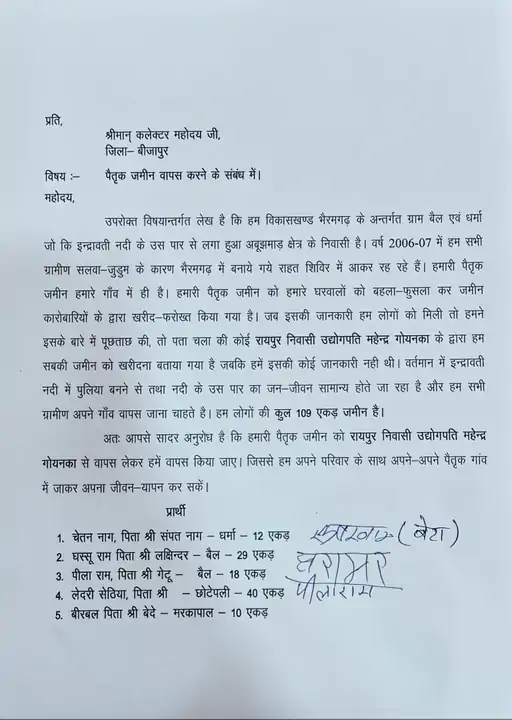 प्रति,
श्रीमान् कलेक्टर महोदय जी,
जिला– बीजापुर
विषय :– पैतृक जमीन वापस करने के संबंध में।
महोदय,
उपरोक्त विषयान्तर्गत लेख है कि हम विकासखण्ड भैरमगढ़ के अन्तर्गत ग्राम बैल एवं धर्मा
जो कि इन्द्रावती नदी के उस पार से लगा हुआ अबूझमाड़ क्षेत्र के निवासी है। वर्ष 2006-07 में हम सभी
ग्रामीण सलवा–जुडुम के कारण भैरमगढ़ में बनाये गये राहत शिविर में आकर रह रहे हैं। हमारी पैतृक
जमीन हमारे गाँव में ही है। हमारी पैतृक जमीन को हमारे घरवालों को बहला–फुसला कर जमीन
कारोबारियों के द्वारा खरीद–फरोख्त किया गया है। जब इसकी जानकारी हम लोगों को मिली तो हमने
इसके बारे में पूछताछ की, तो पता चला की कोई रायपुर निवासी उद्योगपति महेन्द्र गोयनका के द्वारा हम
सबकी जमीन को खरीदना बताया गया है जबकि हमें इसकी कोई जानकारी नही थी। वर्तमान में इन्द्रावती
नदी में पुलिया बनने से तथा नदी के उस पार का जन–जीवन सामान्य होते जा रहा है और हम सभी
ग्रामीण अपने गाँव वापस जाना चाहते है। हम लोगों की कुल 109 एकड़ जमीन है।
अतः आपसे सादर अनुरोध है कि हमारी पैतृक जमीन को रायपुर निवासी उद्योगपति महेन्द्र
गोयनका से वापस लेकर हमें वापस किया जाए। जिससे हम अपने परिवार के साथ अपने–अपने पैतृक गांव
में जाकर अपना जीवन–यापन कर सकें।
प्रार्थी
1. चेतन नाग, पिता श्री संपत नाग – धर्मा – 12 एकड़ (बेटा)
2. घस्सू राम पिता श्री लक्षिन्दर – बैल – 29 एकड़
3. पीला राम, पिता श्री गेदू – बैल – 18 एकड़ पीलाराम
4. लेदरी सेठिया, पिता श्री – छोटेपली – 40 एकड़
5. बीरबल पिता श्री बेदे – मरकापाल – 10 एकड़